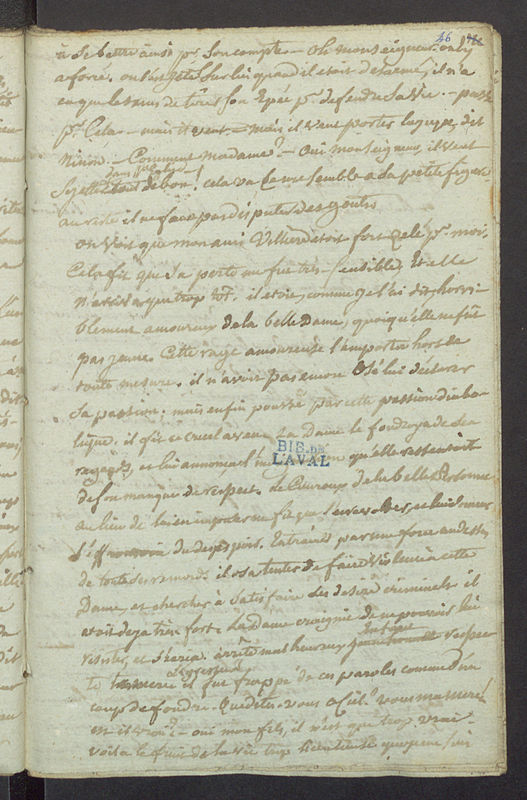 46
à se battre ainsi pr. son compte. — Oh monseigneur on l'y
a forcé. on s'est jetté sur lui quand il etait desarmé; il n'a
eu que le tems de tirer son Epée pr. defendre sa vie. — passe
pr. Cela — mais il veut — mais, il veut porter la jupe, dit
Ninon. — Comment madame? — Oui monseigneur, il veut
tout de bon! cela va ce me semble a sa petite figure
au reste il ne faut pas disputer des gouts
On voit que mon ami Villiers etoit fort zelé pr. moi.
Cela fit que sa perte me fut très sensible, et elle
n'arriva que trop tôt. il etoit, comme je l'ai dit, horri-
blement amoureux de la belle Dame, quoiqu'elle ne fût
pas jeune. Cette rage amoureuse l'emporta hors de
toute mesure. il n'avoit pas encore osé lui déclarer
sa passion. mais enfin poussé par cette passion diabo-
lique. il fit ce cruel aveu. La Dame le foudroya de ses
regards, et lui annonca qu'elle ressentoit
de son manque de respect. le Couroux de la belle Personne
au lieu de lui en imposer ne fit que
du desespoir. Entrainé par une force au dessus
de toute sa raison. il osa tenter de faire violence à cette
Dame, et chercher à satisfaire ses desirs criminels. il
etoit deja très fort. La Dame craignit de ne pouvoir lui
resister, et s'écria. arrête malheureux respecte
ta mere il fut frappé de ces paroles comme d'un
coup de foudre. Que dites-vous o Ciel! vous ma mere!
est il vrai? — oui mon fils, il n'est que trop vrai
voila le fruit de la vie trop licentieuse que j'ai
BIB. DE
LAVAL